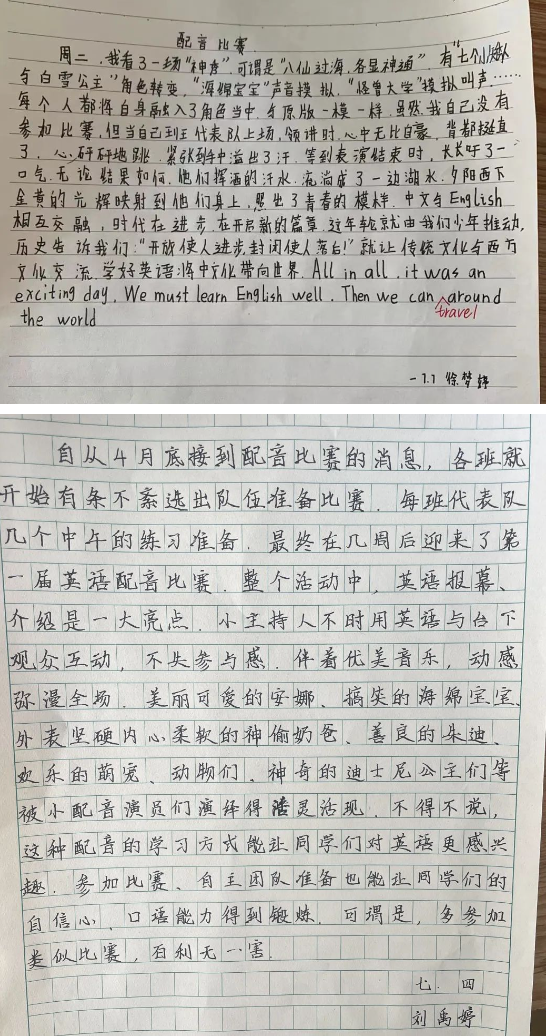 配音比赛
周二,我看了一场"神库",可谓是"八仙过海,各显神通",有"七个小矮人
与白雪公主"角色转变,"海绵宝宝"声音模拟,"怪兽大学"模拟叫声……
每个人都将自身融入了角色当中,与原版一模一样.虽然我自己没有
参加比赛,但当自己班代表队上场,领讲时,心中无比自豪,背都挺直
了,心砰砰地跳,紧张到手中溢出了汗.等到表演结束时,长长吁了一
口气,无论结果如何,他们挥洒的汗水,流淌成了一边湖水,夕阳西下
金黄的光辉映射到他们身上,照出了青春的模样.中文与English
相互交融,时代在进步,在开启新的篇章.这年轮就由我们少年推动,
历史告诉我们:"开放使人进步,封闭使人落后!"就让传统文化与西方
文化交流,学好英语,将中文化带向世界.All in all, it was an
exciting day. We must learn English well. Then we can around
travel
the world
-7.1 徐梦婷
自从4月底接到配音比赛的消息,各班就
开始有条不紊选出队伍准备比赛.每班代表队
几个中午的练习准备.最终在几周后迎来了第
一届英语配音比赛.整个活动中,英语报幕、
介绍是一大亮点.小主持人不时用英语与台下
观众互动,不失参与感.伴着优美音乐,动感
弥漫全场.美丽可爱的安娜、搞笑的海绵宝宝、
外表坚硬内心柔软的神偷奶爸、善良的朱迪、
欢乐的萌宠、动物们、神奇的迪士尼公主们等
被小配音演员们演绎得活灵活现.不得不说,
这种配音的学习方式能让同学们对英语更感兴
趣.参加比赛、自主团队准备也能让同学们的
自信心、口语能力得到锻炼.可谓是,多参加
类似比赛,百利无一害.
七.四
刘禹婷